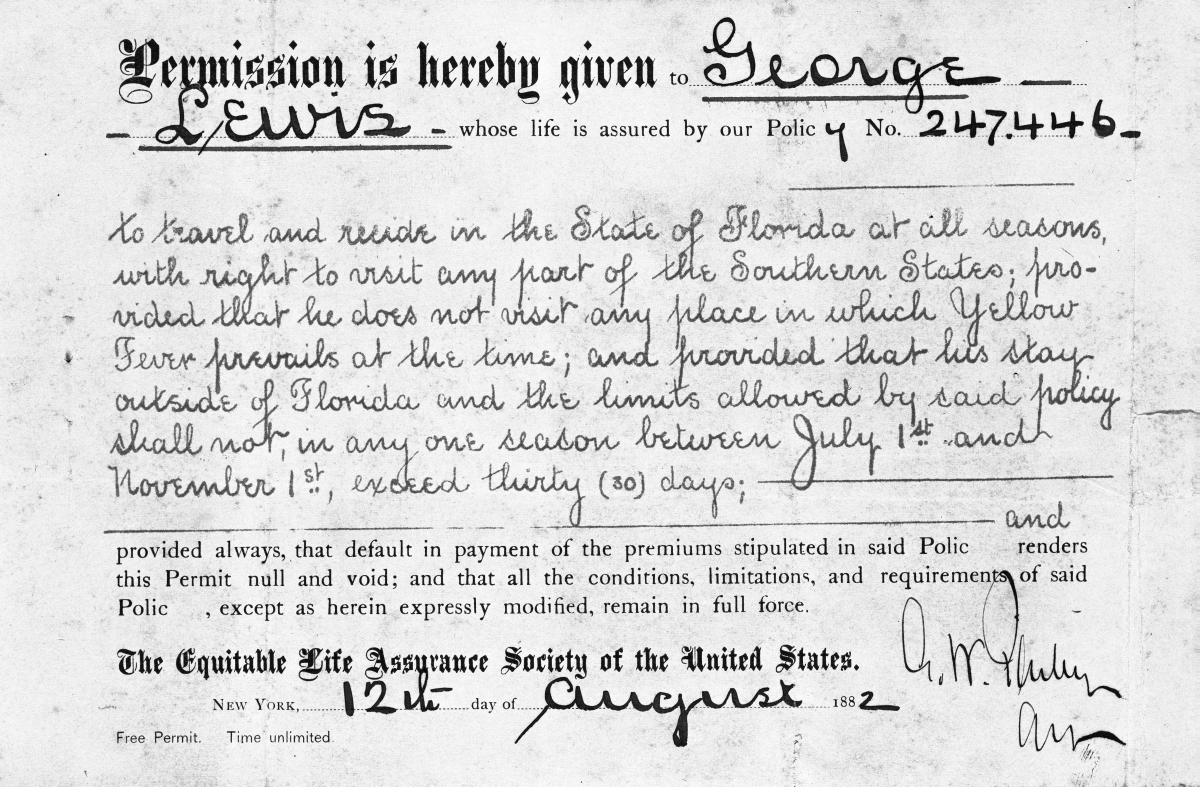 Permission is hereby given to George
Lewis - whose life is assured by our Policy No. 247.446-
to travel and reside in the State of Florida at all seasons,
with right to visit any part of the Southern States; pro-
vided that he does not visit any place in which Yellow
Fever prevails at the time; and provided that his stay
outside of Florida and the limits allowed by said policy
shall not, in any one season between July 1st and
November 1st, exceed thirty (30) days;
and
provided always, that default in payment of the premiums stipulated in said Polic renders
this Permit null and void; and that all the conditions, limitations, and requirements of said
Polic , except as herein expressly modified, remain in full force.
The Equitable Life Assurance Society of the United States.
NEW YORK, 12th day of August 1882
Free Permit. Time unlimited.